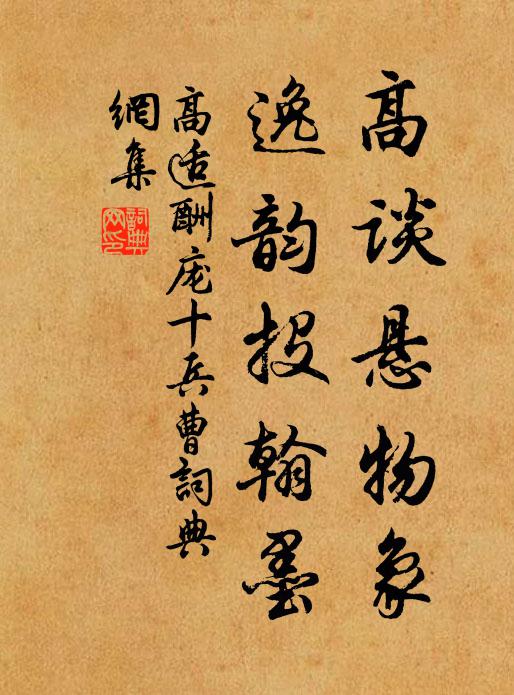 高谈悬物象
逸韵投翰墨
高适酬庞十兵曹詞典
網集
詞典
网印